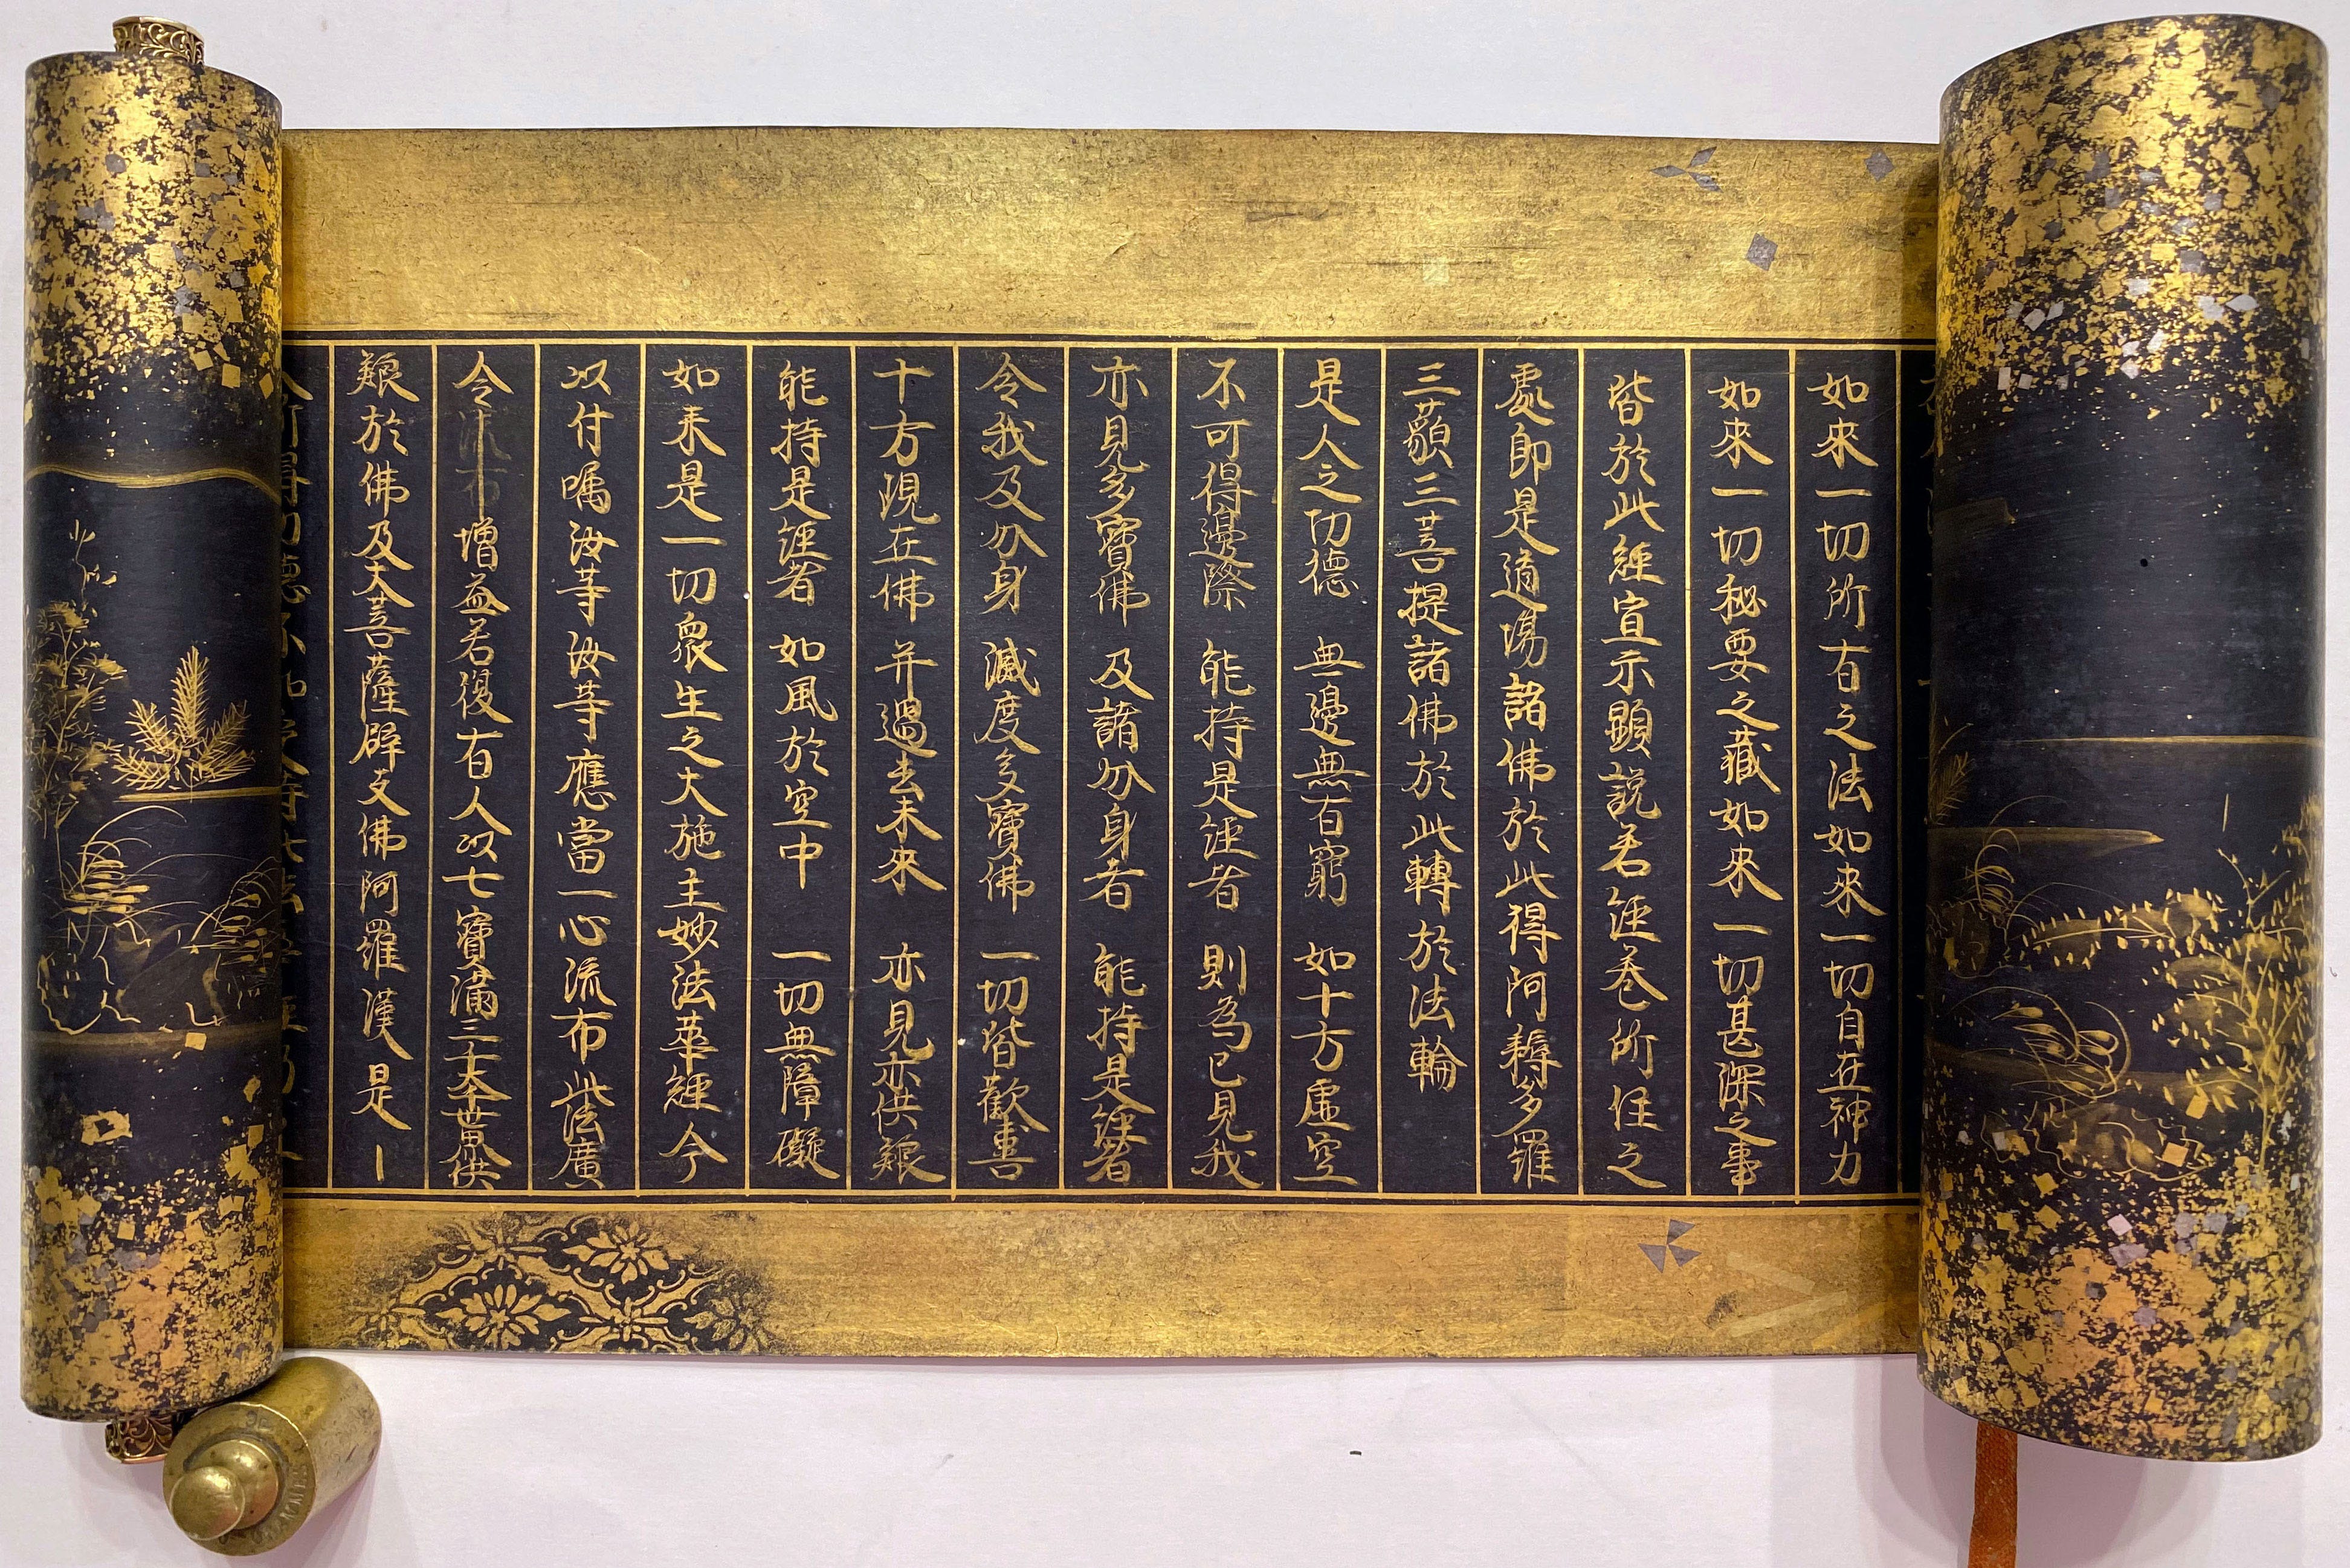 如來一切所有之法如來一切自在神力
如來一切秘要之藏如來一切甚深之事
皆於此經宣示顯說若經卷所住之
處即是道場諸佛於此得阿耨多羅
三藐三菩提諸佛於此轉於法輪
是人之功德 無邊無有窮 如十方虛空
不可得邊際 能持是經者 則為已見我
亦見多寶佛 及諸分身者 能持是經者
令我及分身 滅度多寶佛 一切皆歡喜
十方現在佛 并過去未來 亦見亦供養
能持是經者 如風於空中 一切無障礙
如来是一切眾生之大施主妙法華經今
以付嘱汝等汝等應當一心流布此法廣
令流布增益若復有人以七寶滿三千大千世界供
養於佛及大菩薩辟支佛阿羅漢是